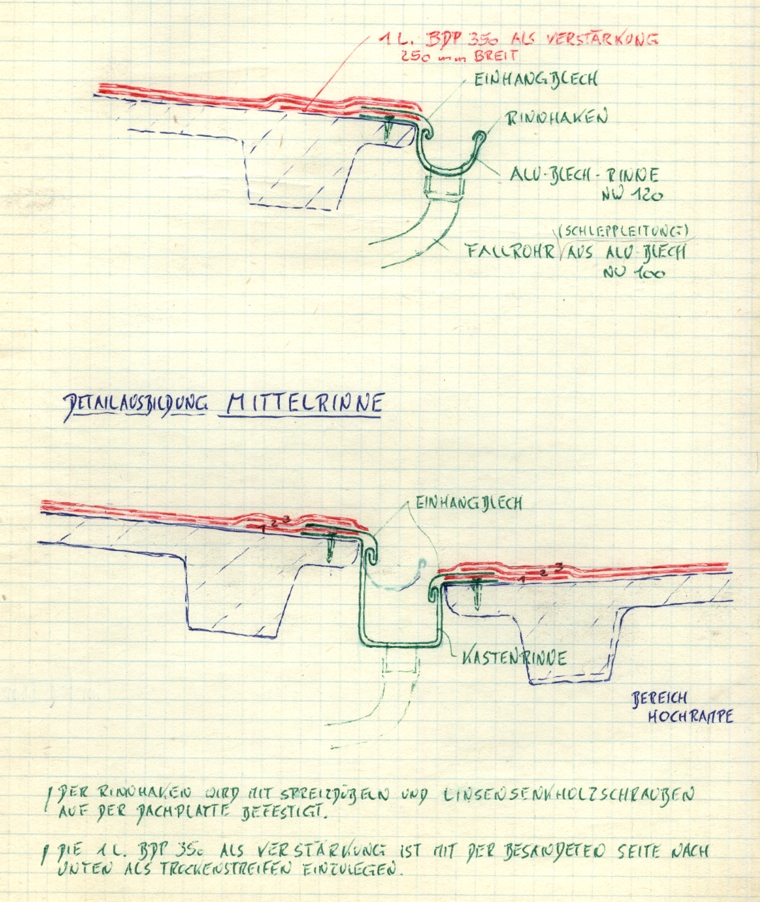 1 L. BDP 350 ALS VERSTÄRKUNG
250 mm BREIT
EINHANGBLECH
RINNHAKEN
ALU-BLECH-RINNE
NW 120
(SCHLEPPLEITUNG)
FALLROHR / AUS ALU-BLECH
NW 100
DETAILAUSBILDUNG MITTELRINNE
EINHANGBLECH
1 2 3
1 2 3
KASTENRINNE
BEREICH
HOCHRAMPE
! DER RINNHAKEN WIRD MIT SPREIZDÜBELN UND LINSENSENKHOLZSCHRAUBEN
AUF DER DACHPLATTE BEFESTIGT.
! DIE 1 L. BDP 350 ALS VERSTÄRKUNG IST MIT DER BESANDETEN SEITE NACH
UNTEN ALS TROCKENSTREIFEN EINZULEGEN.